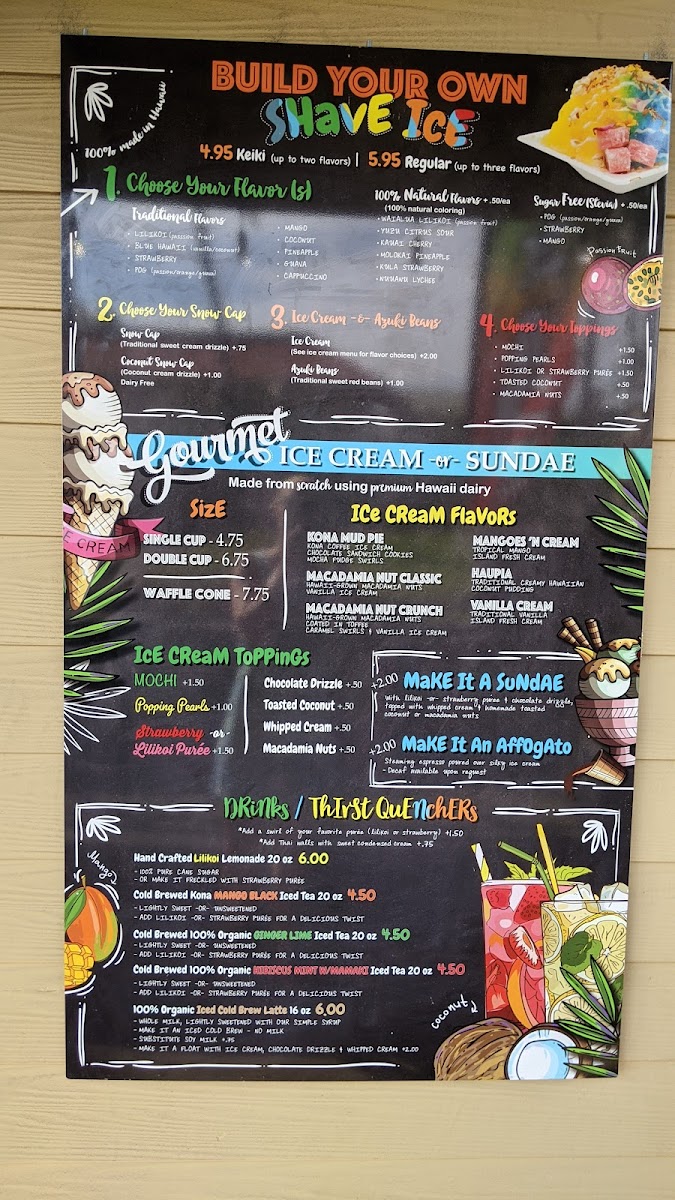 BUILD YOUR OWN
SHAVE ICE
100% made in Hawaii
4.95 Keiki (up to two flavors) | 5.95 Regular (up to three flavors)
1. Choose Your Flavor (s)
Traditional Flavors
- LILIKOI (passion fruit)
- BLUE HAWAII (vanilla/coconut)
- STRAWBERRY
- POG (passion/orange/guava)
- MANGO
- COCONUT
- PINEAPPLE
- GUAVA
- CAPPUCCINO
100% Natural Flavors + .50/ea
(100% natural coloring)
- WAIALUA LILIKOI (passion fruit)
- YUZU CITRUS SOUR
- KAUAI CHERRY
- MOLOKAI PINEAPPLE
- KULA STRAWBERRY
- NUUANU LYCHEE
Sugar Free (Stevia) + .50/ea
- POG (passion/orange/guava)
- STRAWBERRY
- MANGO
Passion Fruit
2. Choose Your Snow Cap
Snow Cap
(Traditional sweet cream drizzle) +.75
Coconut Snow Cap
(Coconut cream drizzle) +1.00
Dairy Free
3. Ice Cream -&- Azuki Beans
Ice Cream
(See ice cream menu for flavor choices) +2.00
Azuki Beans
(Traditional sweet red beans) +1.00
4. Choose Your Toppings
- MOCHI +1.50
- POPPING PEARLS +1.00
- LILIKOI OR STRAWBERRY PURÉE +1.50
- TOASTED COCONUT +.50
- MACADAMIA NUTS +.50
Gourmet ICE CREAM -or- SUNDAE
Made from scratch using premium Hawaii dairy
E CREAM
SIZE
SINGLE CUP - 4.75
DOUBLE CUP - 6.75
WAFFLE CONE - 7.75
ICe CReaM FlaVoRs
KONA MUD PIE
KONA COFFEE ICE CREAM
CHOCOLATE SANDWICH COOKIES
MOCHA FUDGE SWIRLS
MACADAMIA NUT CLASSIC
HAWAII-GROWN MACADAMIA NUTS
VANILLA ICE CREAM
MACADAMIA NUT CRUNCH
HAWAII-GROWN MACADAMIA NUTS
COATED IN TOFFEE
CARAMEL SWIRLS & VANILLA ICE CREAM
MANGOES 'N CREAM
TROPICAL MANGO
ISLAND FRESH CREAM
HAUPIA
TRADITIONAL CREAMY HAWAIIAN
COCONUT PUDDING
VANILLA CREAM
TRADITIONAL VANILLA
ISLAND FRESH CREAM
IcE CReaM ToPPinGs
MOCHI +1.50
Popping Pearls +1.00
Strawberry -or-
Lilikoi Purée +1.50
Chocolate Drizzle +.50
Toasted Coconut +.50
Whipped Cream +.50
Macadamia Nuts +.50
+2.00 MaKE It A SuNdAE
with lilikoi -or- strawberry purée & chocolate drizzle,
topped with whipped cream & homemade toasted
coconut or macadamia nuts
+2.00 MaKE It An AffOgAto
Steaming espresso poured over silky ice cream
- Decaf available upon request
DRiNks / ThIrSt QuENchERs
*Add a swirl of your favorite purée (lilikoi or strawberry) +1.50
*Add Thai walls with sweet condensed cream +.75
Mangos
Hand Crafted Lilikoi Lemonade 20 oz 6.00
- 100% PURE CANE SUGAR
- OR MAKE IT FRECKLED WITH STRAWBERRY PURÉE
Cold Brewed Kona MANGO BLACK Iced Tea 20 oz 4.50
- LIGHTLY SWEET -OR- UNSWEETENED
- ADD LILIKOI -OR- STRAWBERRY PURÉE FOR A DELICIOUS TWIST
Cold Brewed 100% Organic GINGER LIME Iced Tea 20 oz 4.50
- LIGHTLY SWEET -OR- UNSWEETENED
- ADD LILIKOI -OR- STRAWBERRY PURÉE FOR A DELICIOUS TWIST
Cold Brewed 100% Organic HIBISCUS MINT W/MAMAKI Iced Tea 20 oz 4.50
- LIGHTLY SWEET -OR- UNSWEETENED
- ADD LILIKOI -OR- STRAWBERRY PURÉE FOR A DELICIOUS TWIST
100% Organic Iced Cold Brew Latte 16 oz 6.00
- WHOLE MILK, LIGHTLY SWEETENED WITH OUR SIMPLE SYRUP
- MAKE IT AN ICED COLD BREW - NO MILK
- SUBSTITUTE SOY MILK +.75
- MAKE IT A FLOAT WITH ICE CREAM, CHOCOLATE DRIZZLE & WHIPPED CREAM +2.00
coconut